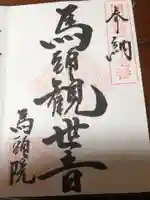 奉納
馬頭観世音
馬頭院